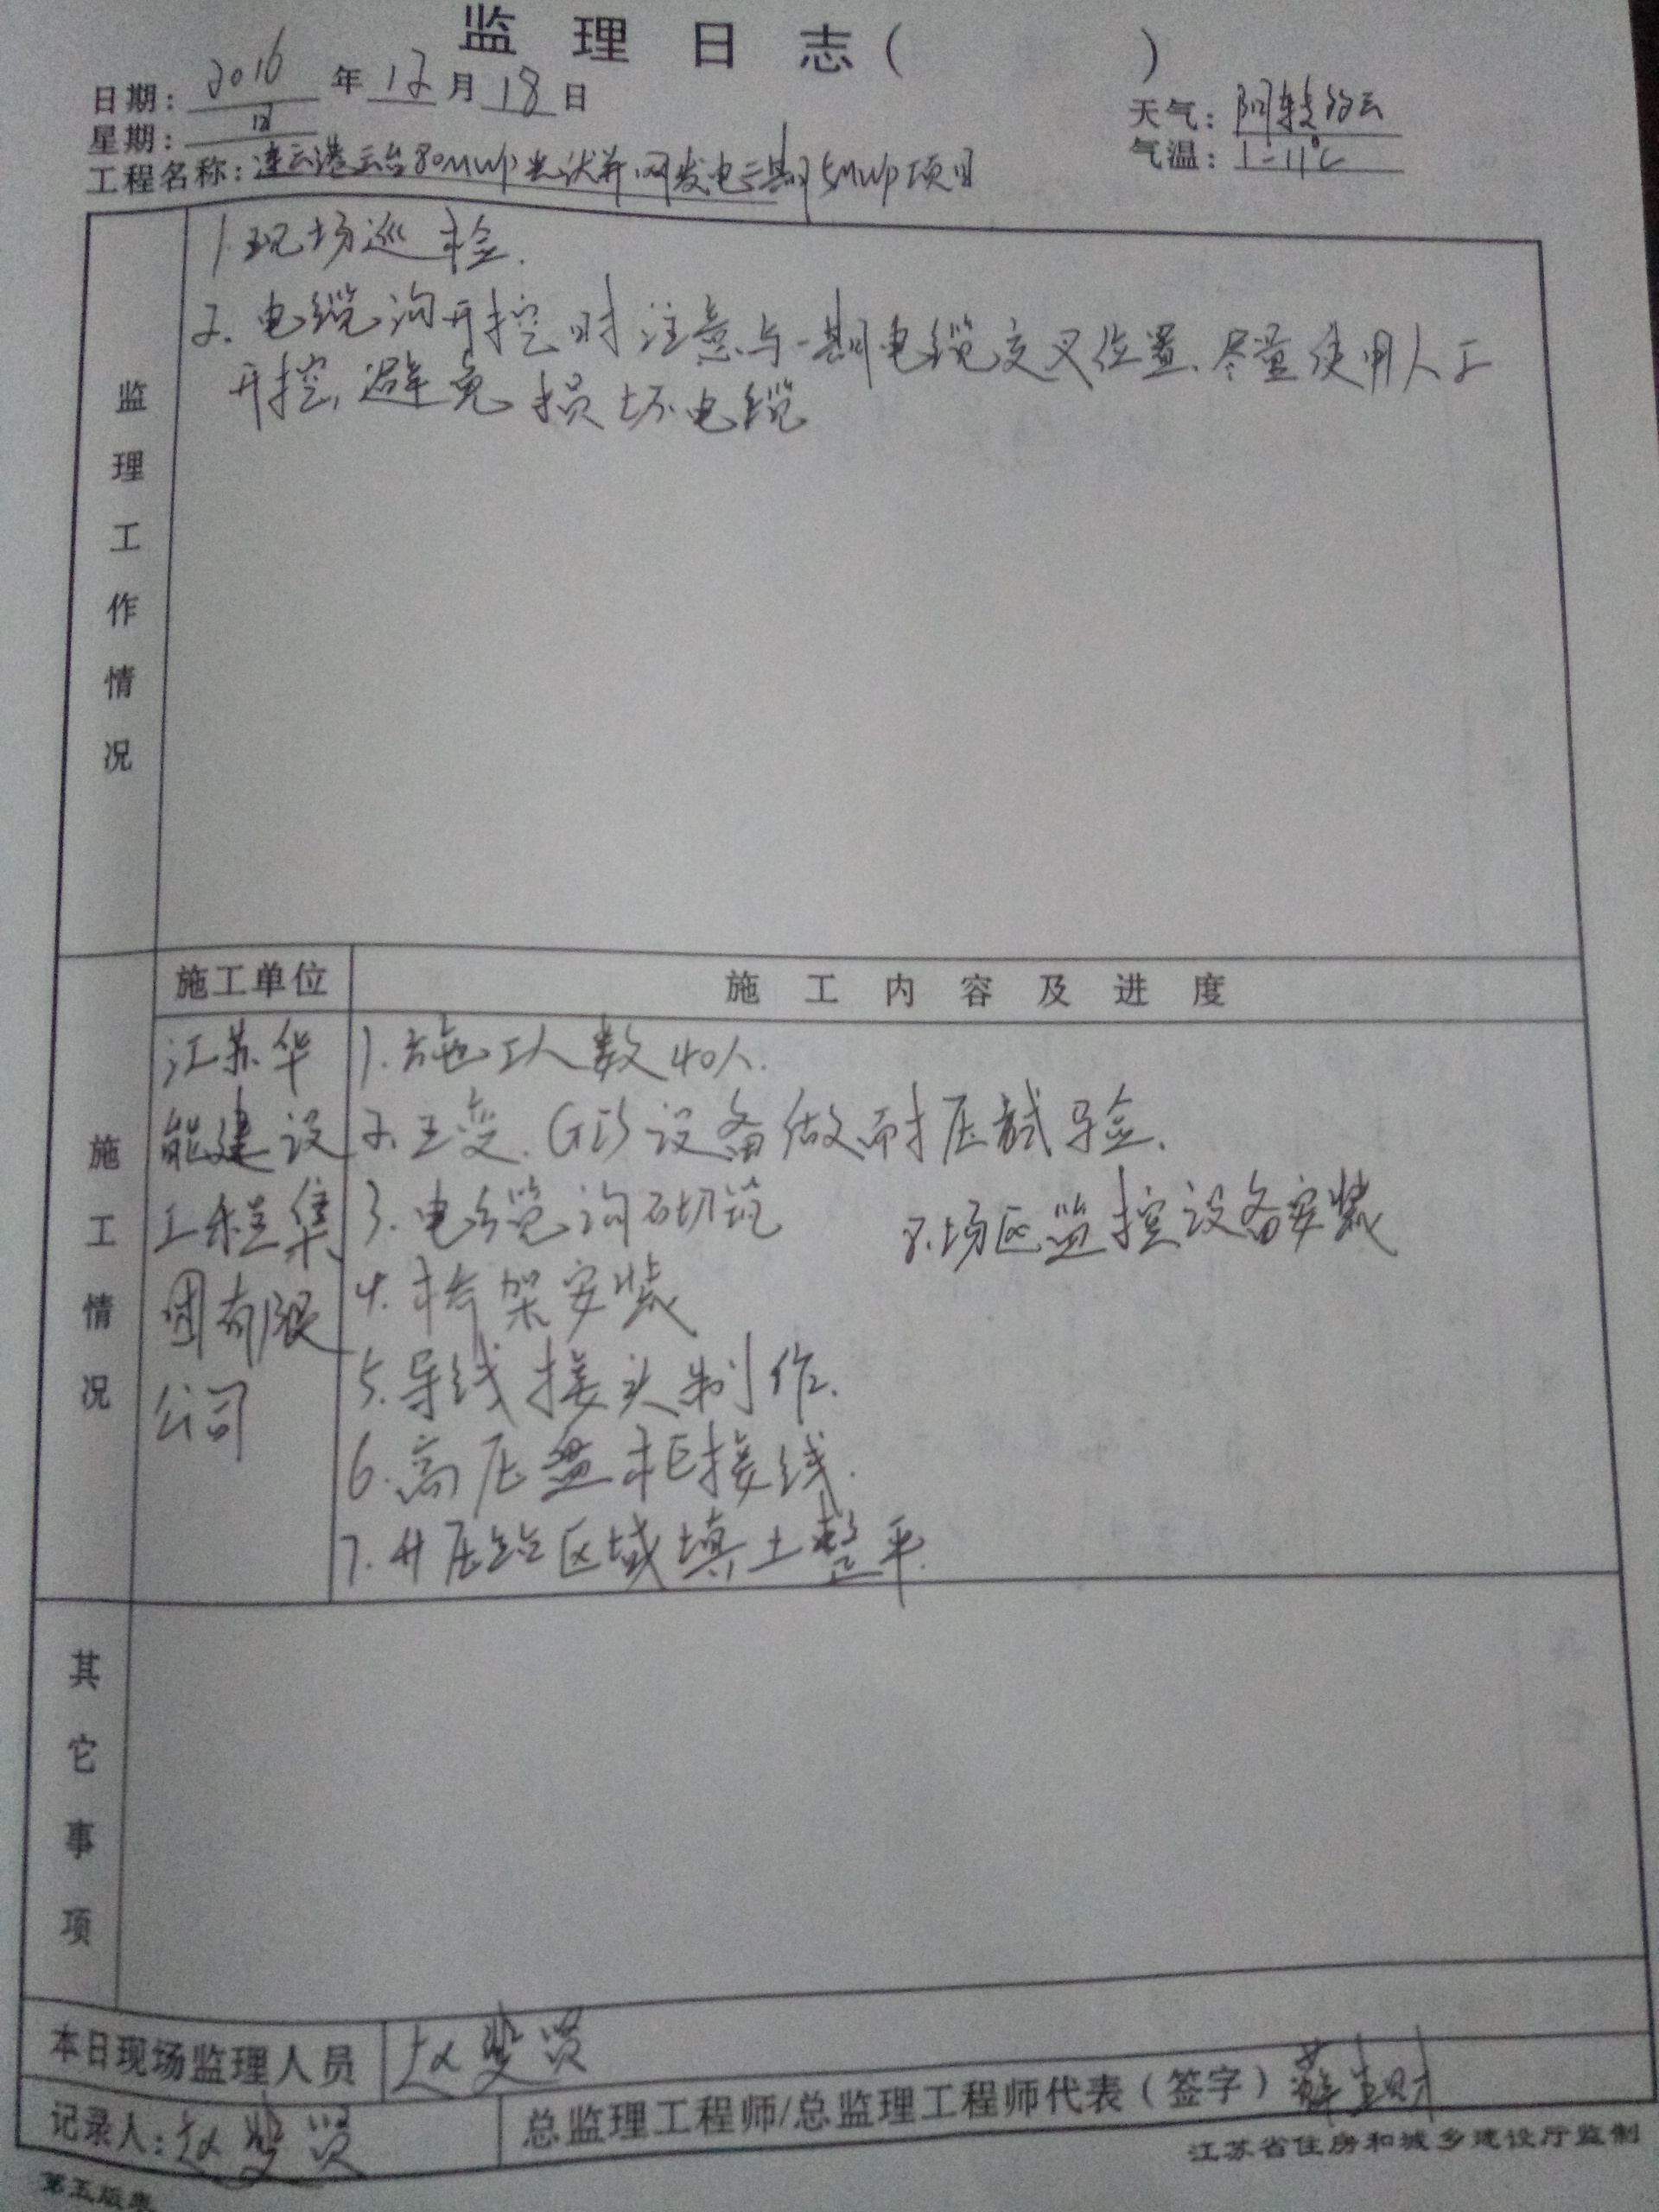 监理日志（　　）
日期：2016年12月18日
星期：日
天气：阴转多云
气温：1-11℃
工程名称：连云港云台80MWp光伏并网发电二期5MWp项目
监理工作情况
1.现场巡检.
2.电缆沟开挖时注意与一期电缆交叉位置、尽量使用人工
开挖,避免损坏电缆
施工情况
施工单位
施工内容及进度
江苏华
能建设
工程集
团有限
公司
1.施工人数40人.
2.主变.GIS设备做耐压试验.
3.电缆沟砌筑
8.场区监控设备安装
4.桥架安装
5.导线接头制作.
6.高压盘柜接线.
7.升压站区域填土整平.
其它事项
本日现场监理人员 赵斐贤
记录人：赵斐贤
总监理工程师/总监理工程师代表（签字）
江苏省住房和城乡建设厅监制
第五版表